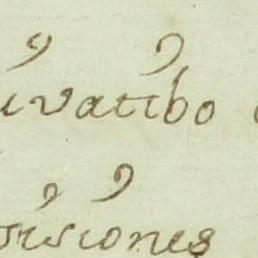 ivatibo
sisiones